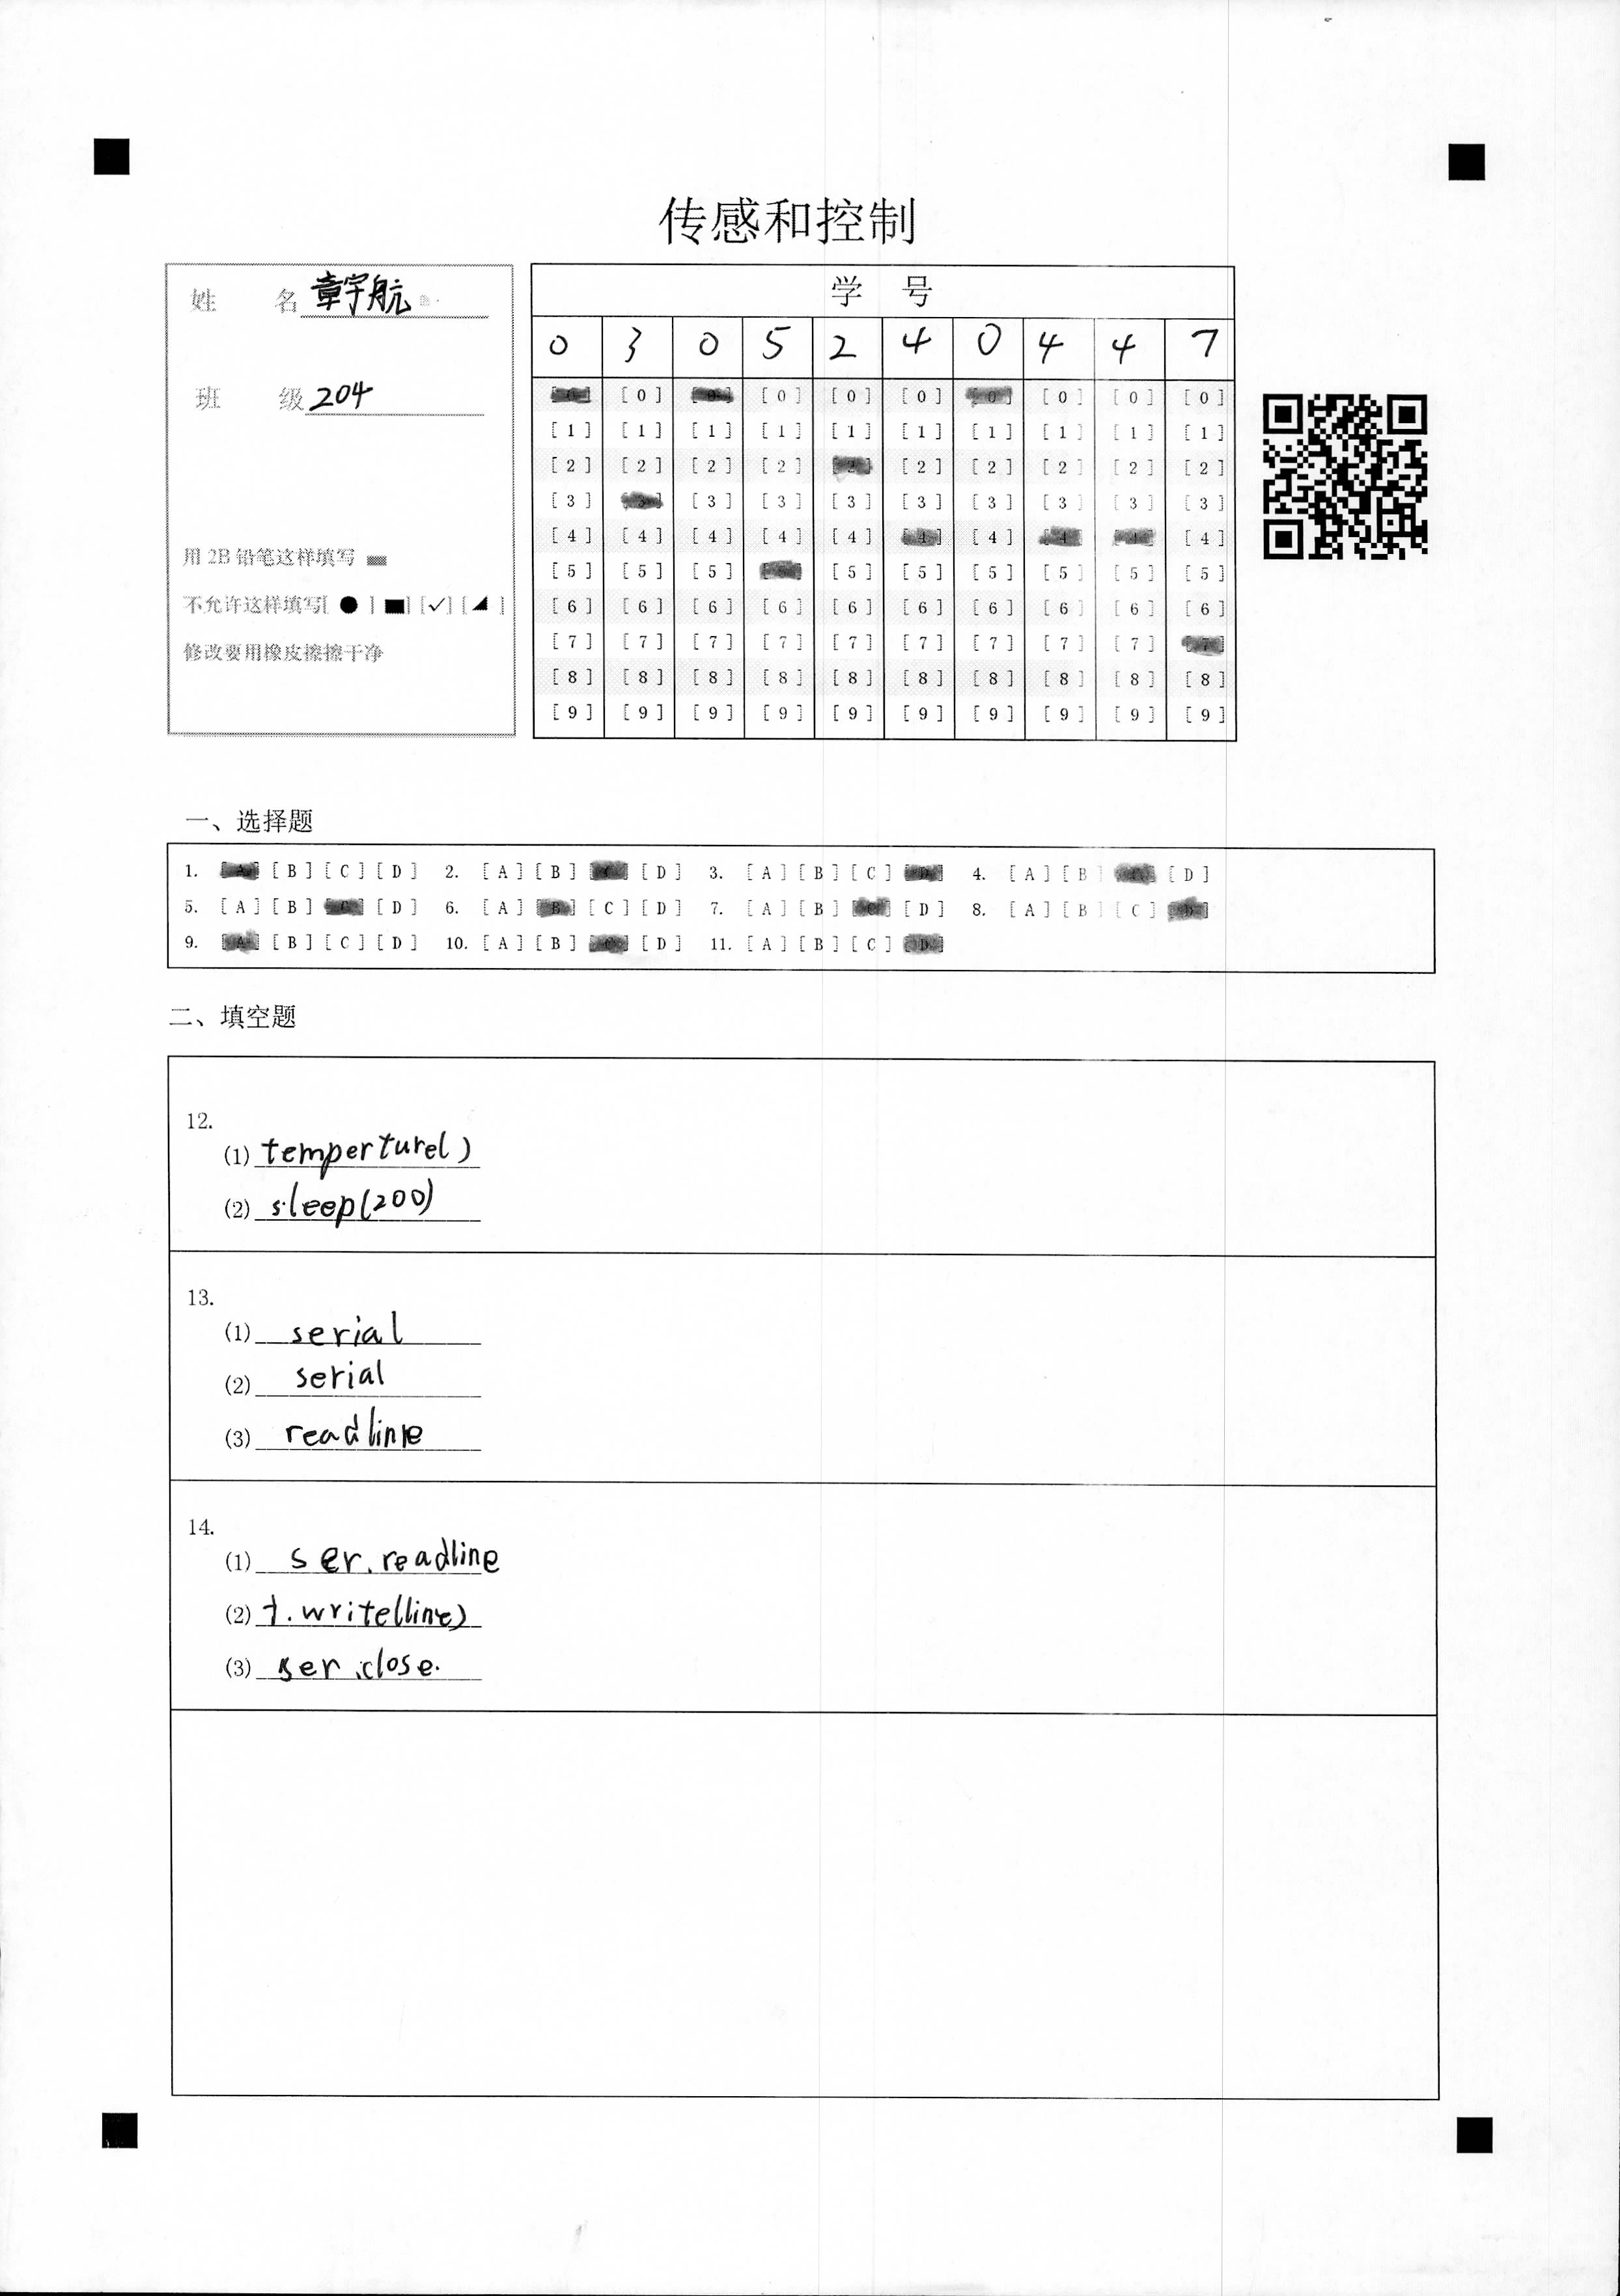 传感和控制
姓 名 章宇航
班 级 204
用 2B 铅笔这样填写
不允许这样填写[ ● ] [■] [✓] [◢ ]
修改要用橡皮擦擦干净
学 号
0 3 0 5 2 4 0 4 4 7
[0] [0] [0] [0] [0] [0] [0] [0] [0] [0]
[1] [1] [1] [1] [1] [1] [1] [1] [1] [1]
[2] [2] [2] [2] [2] [2] [2] [2] [2] [2]
[3] [3] [3] [3] [3] [3] [3] [3] [3] [3]
[4] [4] [4] [4] [4] [4] [4] [4] [4] [4]
[5] [5] [5] [5] [5] [5] [5] [5] [5] [5]
[6] [6] [6] [6] [6] [6] [6] [6] [6] [6]
[7] [7] [7] [7] [7] [7] [7] [7] [7] [7]
[8] [8] [8] [8] [8] [8] [8] [8] [8] [8]
[9] [9] [9] [9] [9] [9] [9] [9] [9] [9]
一、选择题
1. [A] [B] [C] [D] 2. [A] [B] [C] [D] 3. [A] [B] [C] [D] 4. [A] [B] [C] [D]
5. [A] [B] [C] [D] 6. [A] [B] [C] [D] 7. [A] [B] [C] [D] 8. [A] [B] [C] [D]
9. [A] [B] [C] [D] 10. [A] [B] [C] [D] 11. [A] [B] [C] [D]
二、填空题
12.
(1) temperture()
(2) sleep(200)
13.
(1) serial
(2) serial
(3) readline
14.
(1) ser.readline
(2) f.write(line)
(3) ser.close.